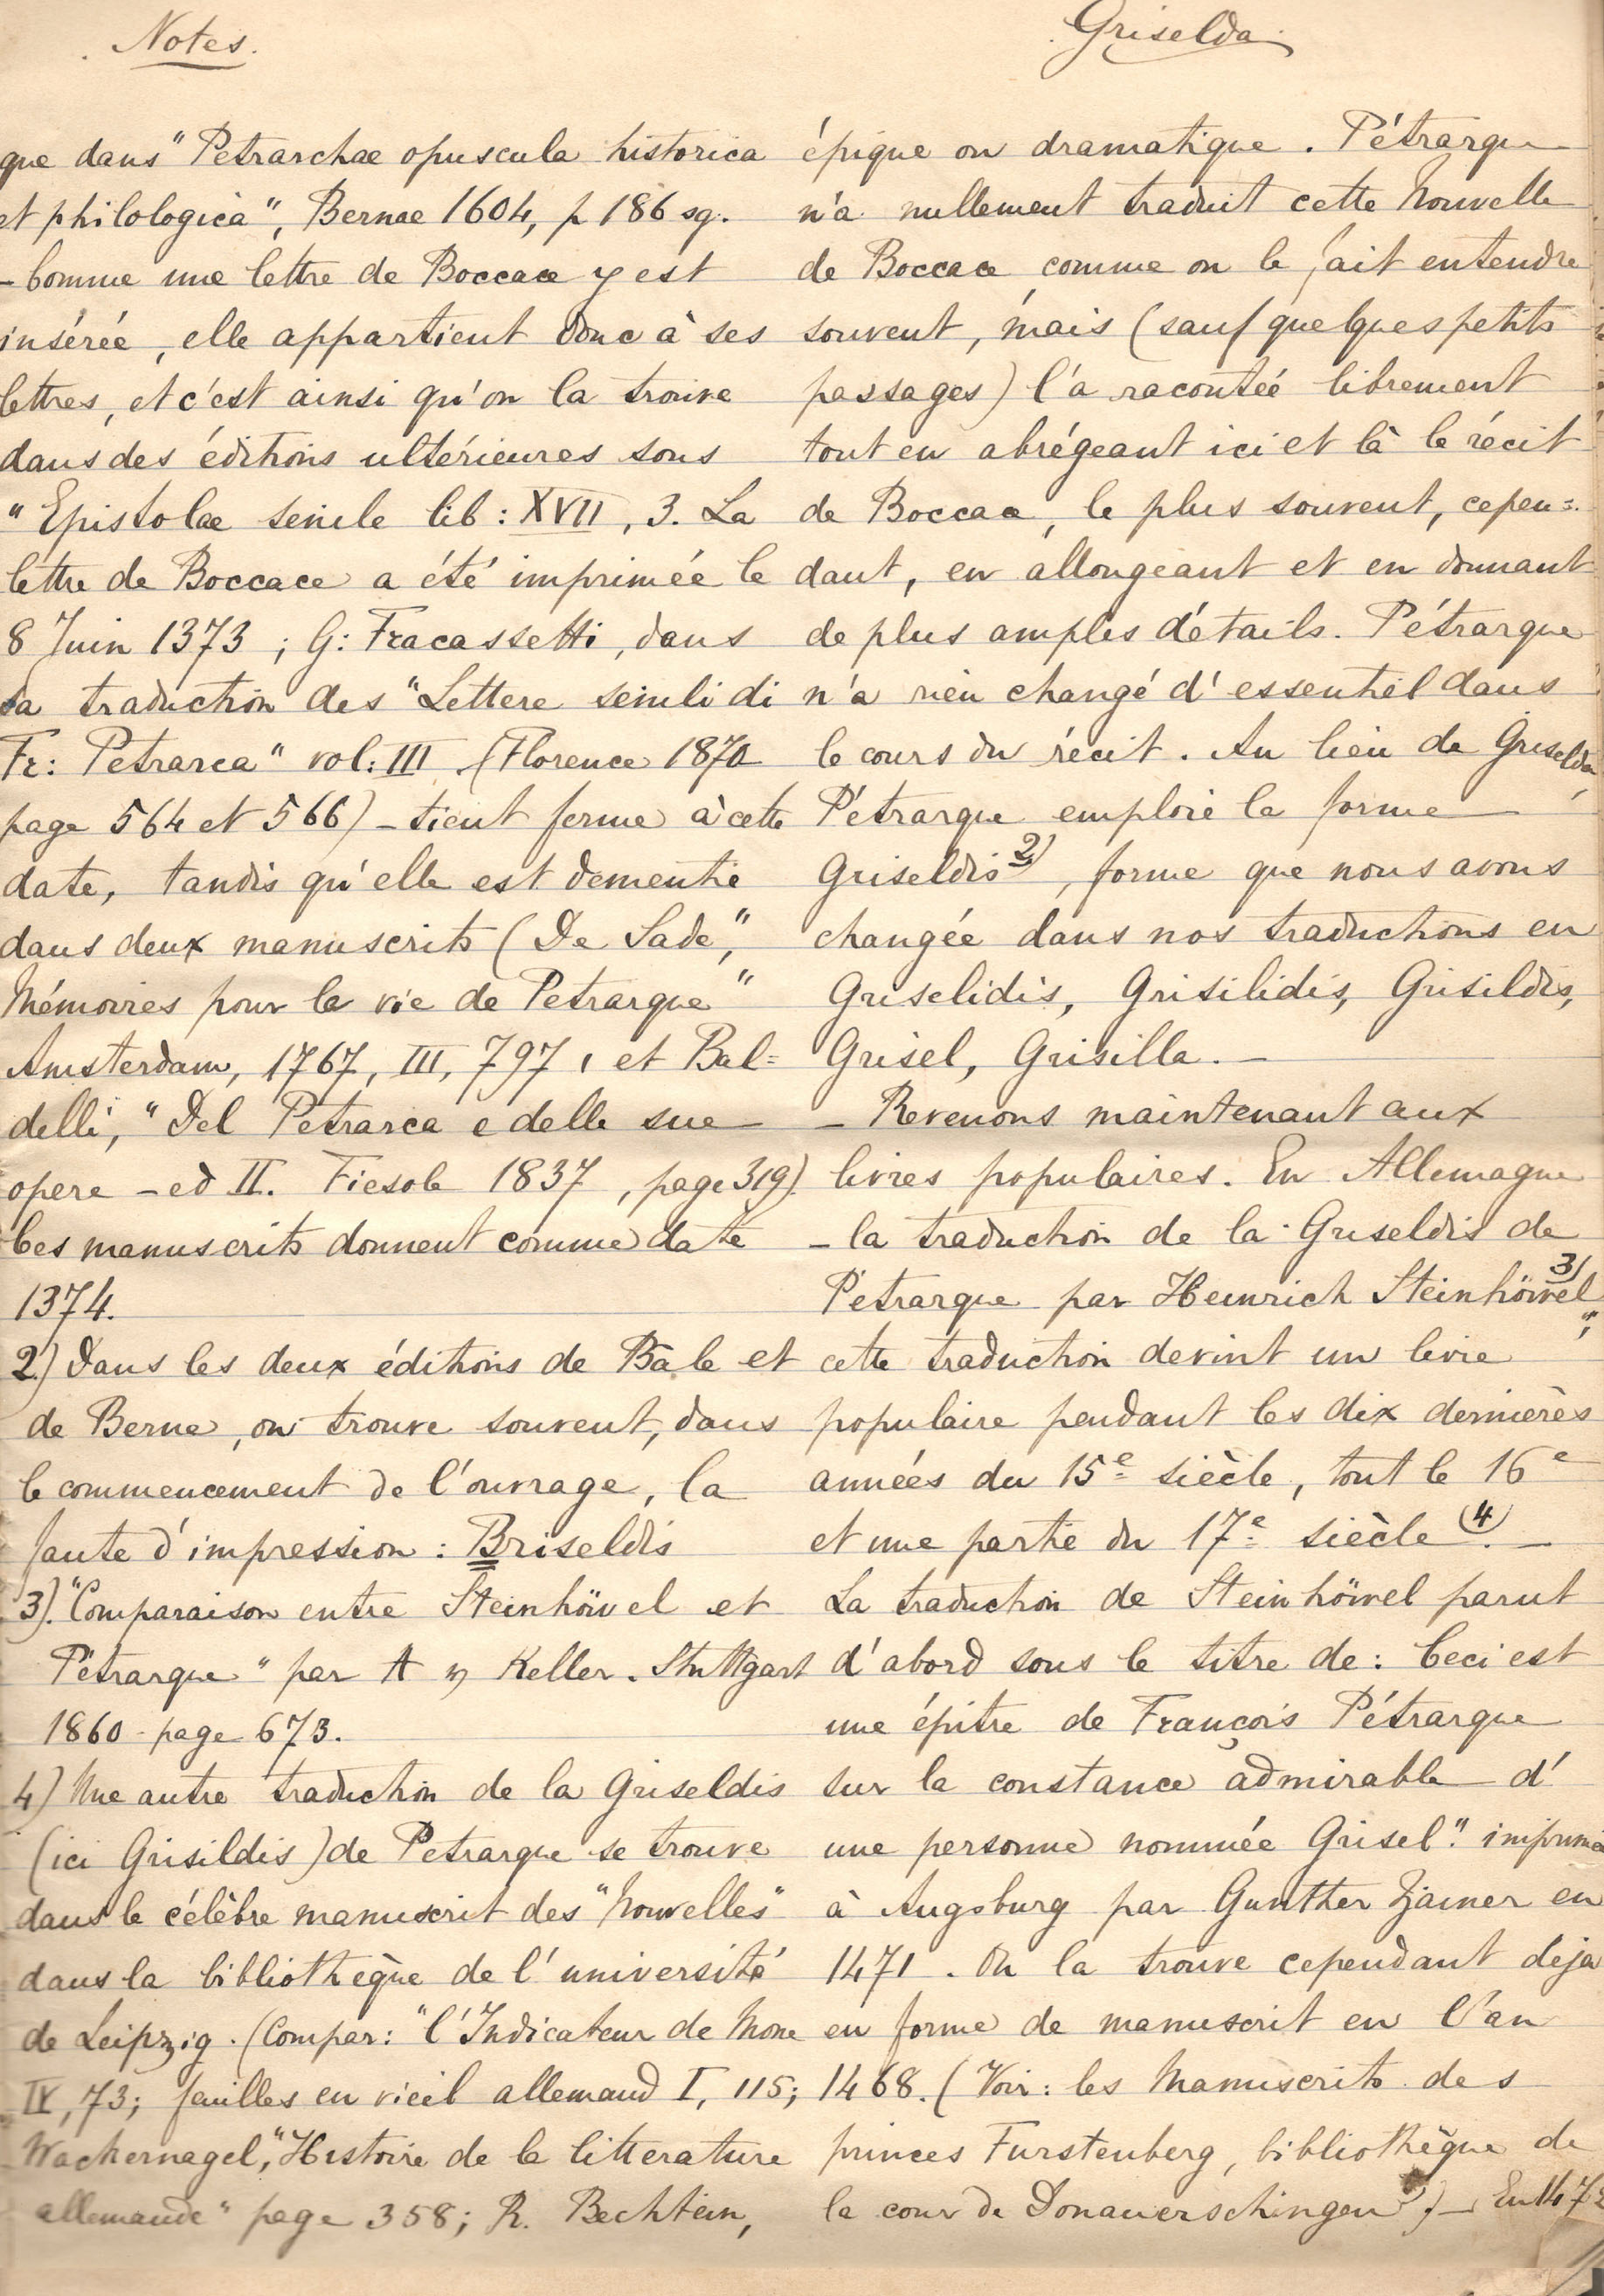 Notes.
que dans "Petrarchae opuscula historica
et philologica", Bernae 1604, p 186 sq.
– Comme une lettre de Boccace y est
insérée, elle appartient donc à ses
lettres, et c'est ainsi qu'on la trouve
dans des éditions ultérieures sous
"Epistolae senile lib: XVII, 3. La
lettre de Boccace a été imprimée le
8 Juin 1373; G: Fracassetti, dans
sa traduction des "Lettere senili di
Fr: Petrarca" vol: III (Florence 1870
page 564 et 566) – tient ferme à cette
date, tandis qu'elle est dementie
dans deux manuscrits (De Sade, "
Mémoires pour la vie de Petrarque"
Amsterdam, 1767, III, 797, et Bal=
delli, "Del Petrarca e delle sue
opere – ed II. Fiesole 1837, page 319).
Ces manuscrits donnent comme date
1374.
2) Dans les deux éditions de Bâle et
de Berne, on trouve souvent, dans
le commencement de l'ouvrage, la
faute d'impression: Briseldis
3). "Comparaison entre Steinhöwel et
Pétrarque" par A v Keller. Stuttgart
1860 - page 673.
4) Une autre traduction de la Griseldis
(ici Grisildis) de Petrarque se trouve
dans le célèbre manuscrit des "Nouvelles"
dans la bibliothèque de l'université
de Leipzig. (Compar: "l'Indicateur de Mone
IV, 73; feuilles en vieil allemand I, 115;
Wackernagel, "Histoire de la litterature
allemande" page 358; R. Bechtein,
Griselda.
épique ou dramatique. Pétrarque
n'a nullement traduit cette Nouvelle
de Boccace comme on le fait entendre
souvent, mais (sauf quelques petits
passages) l'a racontée librement
tout en abrégeant ici et là le récit
de Boccace, le plus souvent, cepen=
dant, en allongeant et en donnant
de plus amples détails. Pétrarque
n'a rien changé d'essentiel dans
le cours du récit. Au lieu de Griselda,
Pétrarque emploie la forme
Griseldis 2), forme que nous avons
changée dans nos traductions en
Griselidis, Grisilidis, Grisildis,
Grisel, Grisilla. –
– Revenons maintenant aux
livres populaires. En Allemagne
– la traduction de la Griseldis de
Pétrarque par Heinrich Steinhöwel 3)";
cette traduction devint un livre
populaire pendant les dix dernières
années du 15e siècle, tout le 16e
et une partie du 17e siècle (4). –
La traduction de Steinhöwel parut
d'abord sous le titre de: Ceci est
une épitre de François Pétrarque
sur la constance admirable d'
une personne nommée Grisel". imprimée
à Augsburg par Gunther Zjainer en
1471. On la trouve cependant deja
en forme de manuscrit en l'an
1468. (Voir: les Manuscrits des
princes Furstenberg, bibliothèque de
la cour de Donauerschingen). – En 1472